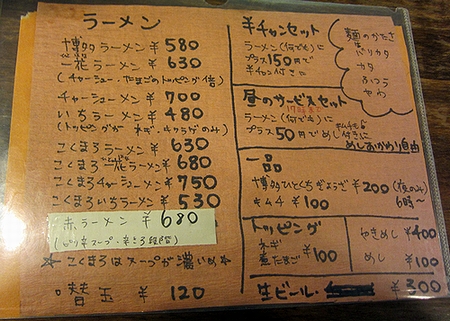 ラーメン
博多ラーメン ¥580
一花ラーメン ¥630
(チャーシュー、たまごのトッピング倍)
チャーシューメン ¥700
いちラーメン ¥480
(トッピングが ネギ、キクラゲのみ)
こくまろラーメン ¥630
こくまろ一花ラーメン ¥680
こくまろチャーシューメン ¥750
こくまろいちラーメン ¥530
赤ラーメン ¥680
(ピリ辛スープ・辛さ3段階)
☆こくまろはスープが濃いめ☆
替玉 ¥120
半チャンセット
ラーメン(何でも)に
プラス150円で
半チャン付きに
麺のかたさ
生
バリカタ
カタ
ふつう
やわ
昼のサービスセット
17時まで
ラーメン(何でも)に
プラス50円でめし付きに
めしおかわり自由
一品
博多ひとくちぎょうざ ¥200 (夜のみ)
6時〜
キムチ ¥100
トッピング
ネギ
煮たまご ¥100
やきめし ¥400
めし ¥100
生ビール ¥300